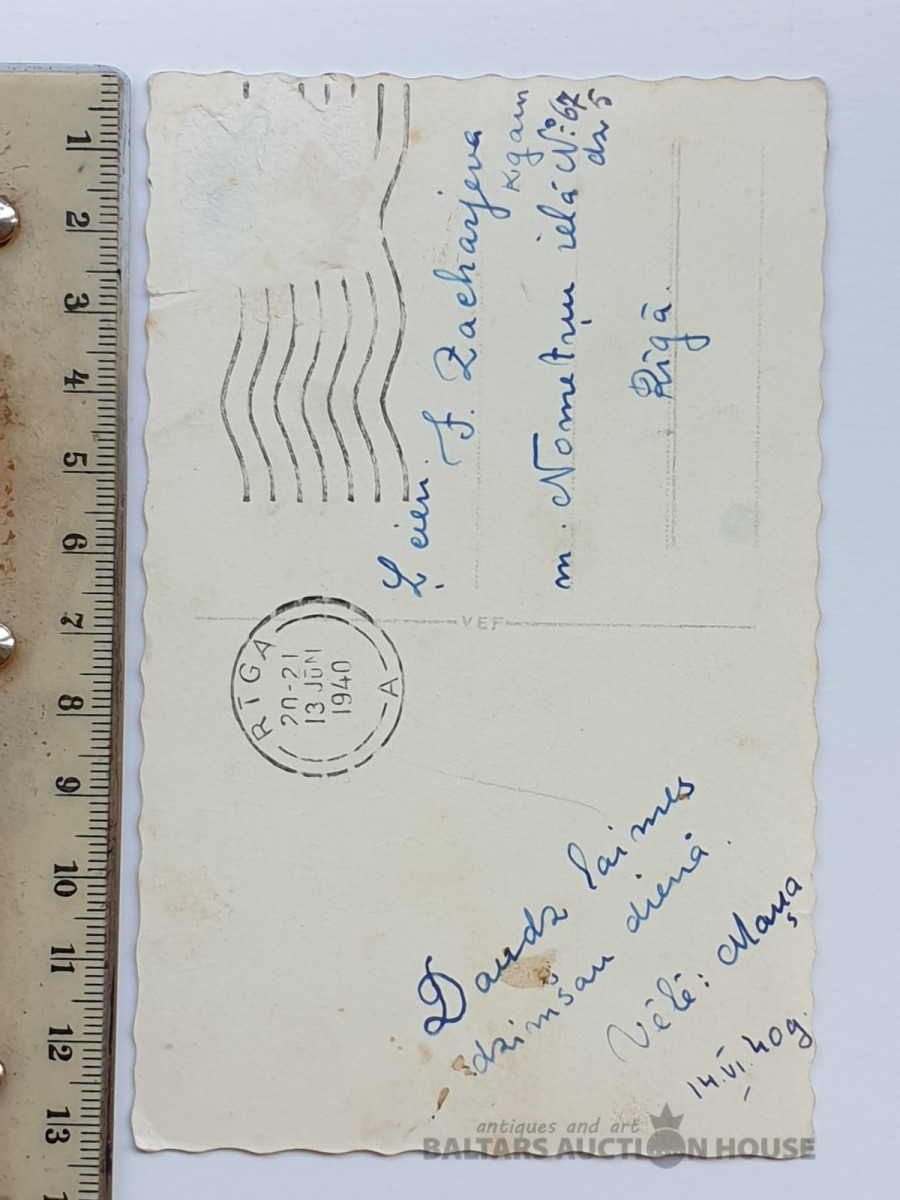 Daudz laimes
dzimšan dienā.
Vēlē: Maņa
14.VI.40 g.
RĪGA
20-21
13 JŪN
1940
A
VEF
Ļ cien. J. Zacharjeva
kgam
m. Nometņu ielā №: 67
dz 5
Rīgā.
1 2 3 4 5 6 7 8 9 10 11 12 13
antiques and art
BALTARS AUCTION HOUSE